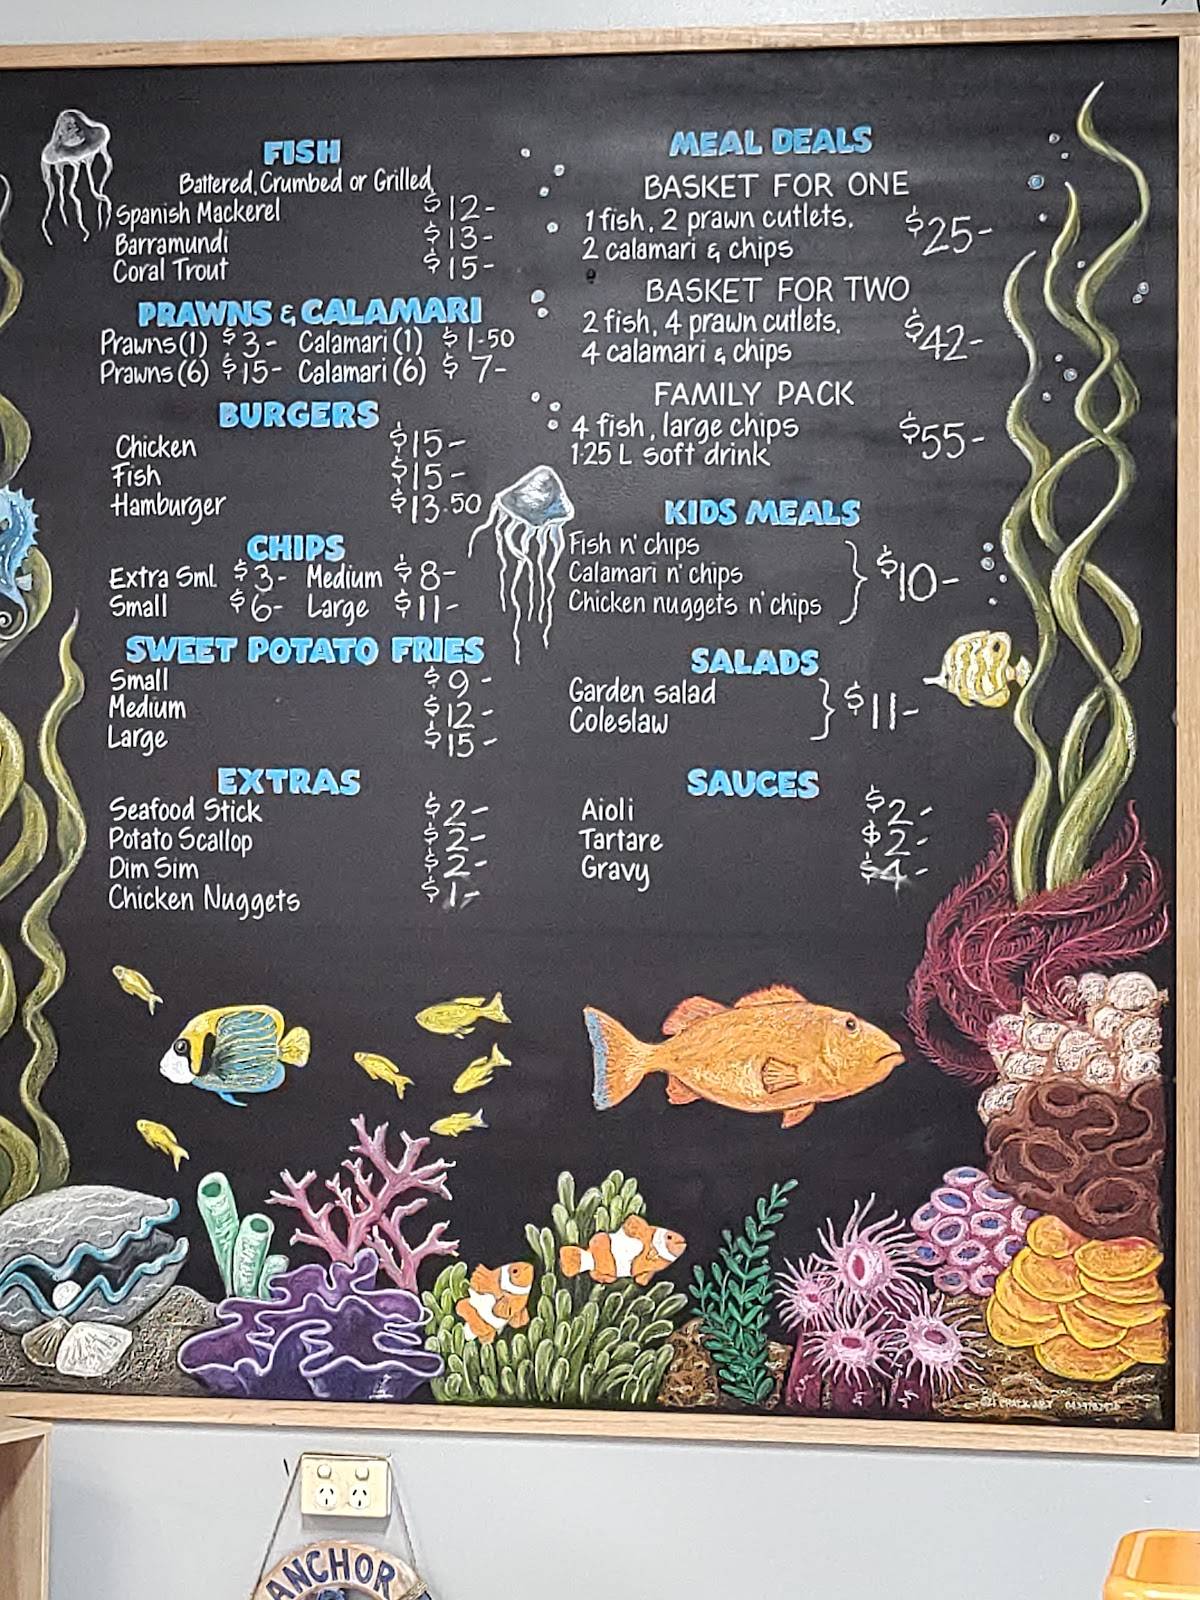 FISH
Battered, Crumbed or Grilled
Spanish Mackerel $12-
Barramundi $13-
Coral Trout $15-
PRAWNS & CALAMARI
Prawns (1) $3- Calamari (1) $1.50
Prawns (6) $15- Calamari (6) $7-
BURGERS
Chicken $15-
Fish $15-
Hamburger $13.50
CHIPS
Extra Sml. $3- Medium $8-
Small $6- Large $11-
SWEET POTATO FRIES
Small $9-
Medium $12-
Large $15-
EXTRAS
Seafood Stick $2-
Potato Scallop $2-
Dim Sim $2-
Chicken Nuggets $1-
MEAL DEALS
BASKET FOR ONE
1 fish, 2 prawn cutlets,
2 calamari & chips $25-
BASKET FOR TWO
2 fish, 4 prawn cutlets,
4 calamari & chips $42-
FAMILY PACK
4 fish, large chips
1.25 L soft drink $55-
KIDS MEALS
Fish n' chips
Calamari n' chips $10-
Chicken nuggets n' chips
SALADS
Garden salad
Coleslaw $11-
SAUCES
Aioli $2-
Tartare $2-
Gravy $4-
ANCHOR